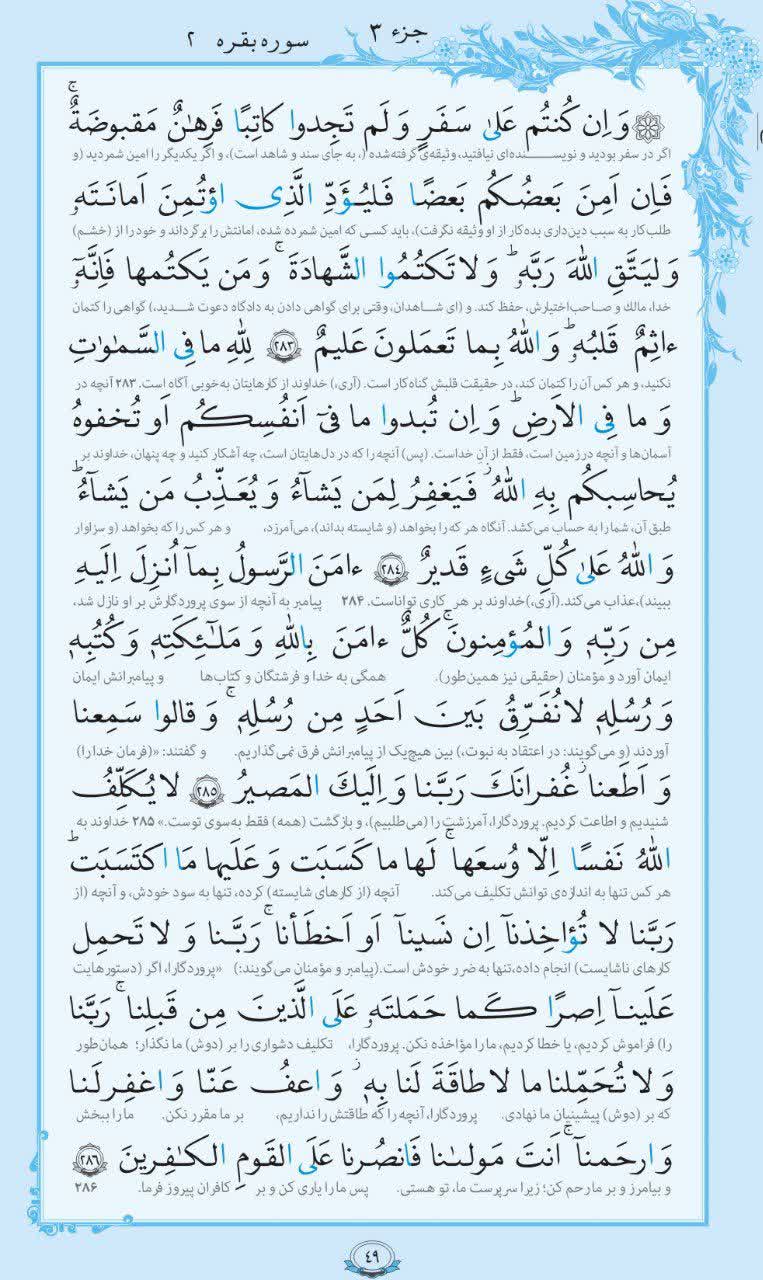 جزء ۳
سوره بقره ۲
وَ اِن كُنتُم عَلىٰ سَفَرٍ وَ لَم تَجِدوا كاتِبًا فَرِهٰنٌ مَقبوضَةٌ ۚ
اگر در سفر بودید و نویسنده‌ای نیافتید، وثیقه‌ی گرفته‌شده (، به جای سند و شاهد است)، و اگر یکدیگر را امین شمردید (و
فَاِن اَمِنَ بَعضُكُم بَعضًا فَليُؤَدِّ الَّذِى اؤتُمِنَ اَمانَتَهٗ
طلب‌کار به سبب دین‌داری بده‌کار از او وثیقه نگرفت)، باید کسی که امین شمرده شده، امانتش را برگرداند و خود را از (خشم)
وَ ليَتَّقِ اللّٰهَ رَبَّهٗ ؕ وَ لا تَكتُمُوا الشَّهادَةَ ۚ وَ مَن يَكتُمها فَاِنَّهٗٓ
خدا، مالك و صاحب‌اختیارش، حفظ کند. و (ای شاهدان، وقتی برای گواهی دادن به دادگاه دعوت شدید،) گواهی را کتمان
ءاثِمٌ قَلبُهٗ ؕ وَ اللّٰهُ بِما تَعمَلونَ عَليمٌ ﴿۲۸۳﴾ لِلّٰهِ ما فِى السَّمٰوٰتِ
نکنید، و هر کس آن را کتمان کند، در حقیقت قلبش گناه‌کار است. (آری،) خداوند از کارهایتان به‌خوبی آگاه است. ۲۸۳ آنچه در
وَ ما فِى الاَرضِ ؕ وَ اِن تُبدوا ما فىٓ اَنفُسِكُم اَو تُخفوهُ
آسمان‌ها و آنچه در زمین است، فقط از آنِ خداست. (پس) آنچه را که در دل‌هایتان است، چه آشکار کنید و چه پنهان، خداوند بر
يُحاسِبكُم بِهِ اللّٰهُ ۖ فَيَغفِرُ لِمَن يَشآءُ وَ يُعَذِّبُ مَن يَشآءُ ؕ
طبق آن، شما را به حساب می‌کشد. آنگاه هر که را بخواهد (و شایسته بداند)، می‌آمرزد، و هر کس را که بخواهد (و سزاوار
وَ اللّٰهُ عَلىٰ كُلِّ شَىءٍ قَديرٌ ﴿۲۸٤﴾ ءامَنَ الرَّسولُ بِمآ اُنزِلَ اِلَيهِ
ببیند)، عذاب می‌کند. (آری،) خداوند بر هر کاری تواناست. ۲۸۴ پیامبر به آنچه از سوی پروردگارش بر او نازل شد،
مِن رَبِّهٖ وَ المُؤمِنونَ ۚ كُلٌّ ءامَنَ بِاللّٰهِ وَ مَلٰٓئِكَتِهٖ وَ كُتُبِهٖ
ایمان آورد و مؤمنان (حقیقی نیز همین‌طور). همگی به خدا و فرشتگان و کتاب‌ها و پیامبرانش ایمان
وَ رُسُلِهٖ لا نُفَرِّقُ بَينَ اَحَدٍ مِن رُسُلِهٖ ۚ وَ قالوا سَمِعنا
آوردند (و می‌گویند: در اعتقاد به نبوت،) بین هیچ‌یک از پیامبرانش فرق نمی‌گذاریم. و گفتند: «(فرمان خدا را)
وَ اَطَعنا ۖ غُفرانَكَ رَبَّنا وَ اِلَيكَ المَصيرُ ﴿۲۸۵﴾ لا يُكَلِّفُ
شنیدیم و اطاعت کردیم. پروردگارا، آمرزشت را (می‌طلبیم)، و بازگشت (همه) فقط به‌سوی توست.» ۲۸۵ خداوند به
اللّٰهُ نَفسًا اِلّا وُسعَها ۚ لَها ما كَسَبَت وَ عَلَيها مَا اكتَسَبَت ؕ
هر کس تنها به اندازه‌ی توانش تکلیف می‌کند. آنچه (از کارهای شایسته) کرده، تنها به سود خودش، و آنچه (از
رَبَّنا لا تُؤاخِذنآ اِن نَسينآ اَو اَخطَأنا ۚ رَبَّنا وَ لا تَحمِل
کارهای ناشایست) انجام داده، تنها به ضرر خودش است. (پیامبر و مؤمنان می‌گویند:) «پروردگارا، اگر (دستورهایت
عَلَينآ اِصرًا كَما حَمَلتَهٗ عَلَى الَّذينَ مِن قَبلِنا ۚ رَبَّنا
را) فراموش کردیم، یا خطا کردیم، ما را مؤاخذه نکن. پروردگارا، تکلیف دشواری را بر (دوش) ما نگذار؛ همان‌طور
وَ لا تُحَمِّلنا ما لا طاقَةَ لَنا بِهٖ ۖ وَ اعفُ عَنّا وَ اغفِر لَنا
که بر (دوش) پیشینیان ما نهادی. پروردگارا، آنچه را که طاقتش را نداریم، بر ما مقرر نکن. ما را ببخش
وَ ارحَمنآ ۚ اَنتَ مَولىٰنا فَانصُرنا عَلَى القَومِ الكٰفِرينَ ﴿۲۸٦﴾
و بیامرز و بر ما رحم کن؛ زیرا سرپرست ما، تو هستی. پس ما را یاری کن و بر کافران پیروز فرما. ۲۸۶
٤۹